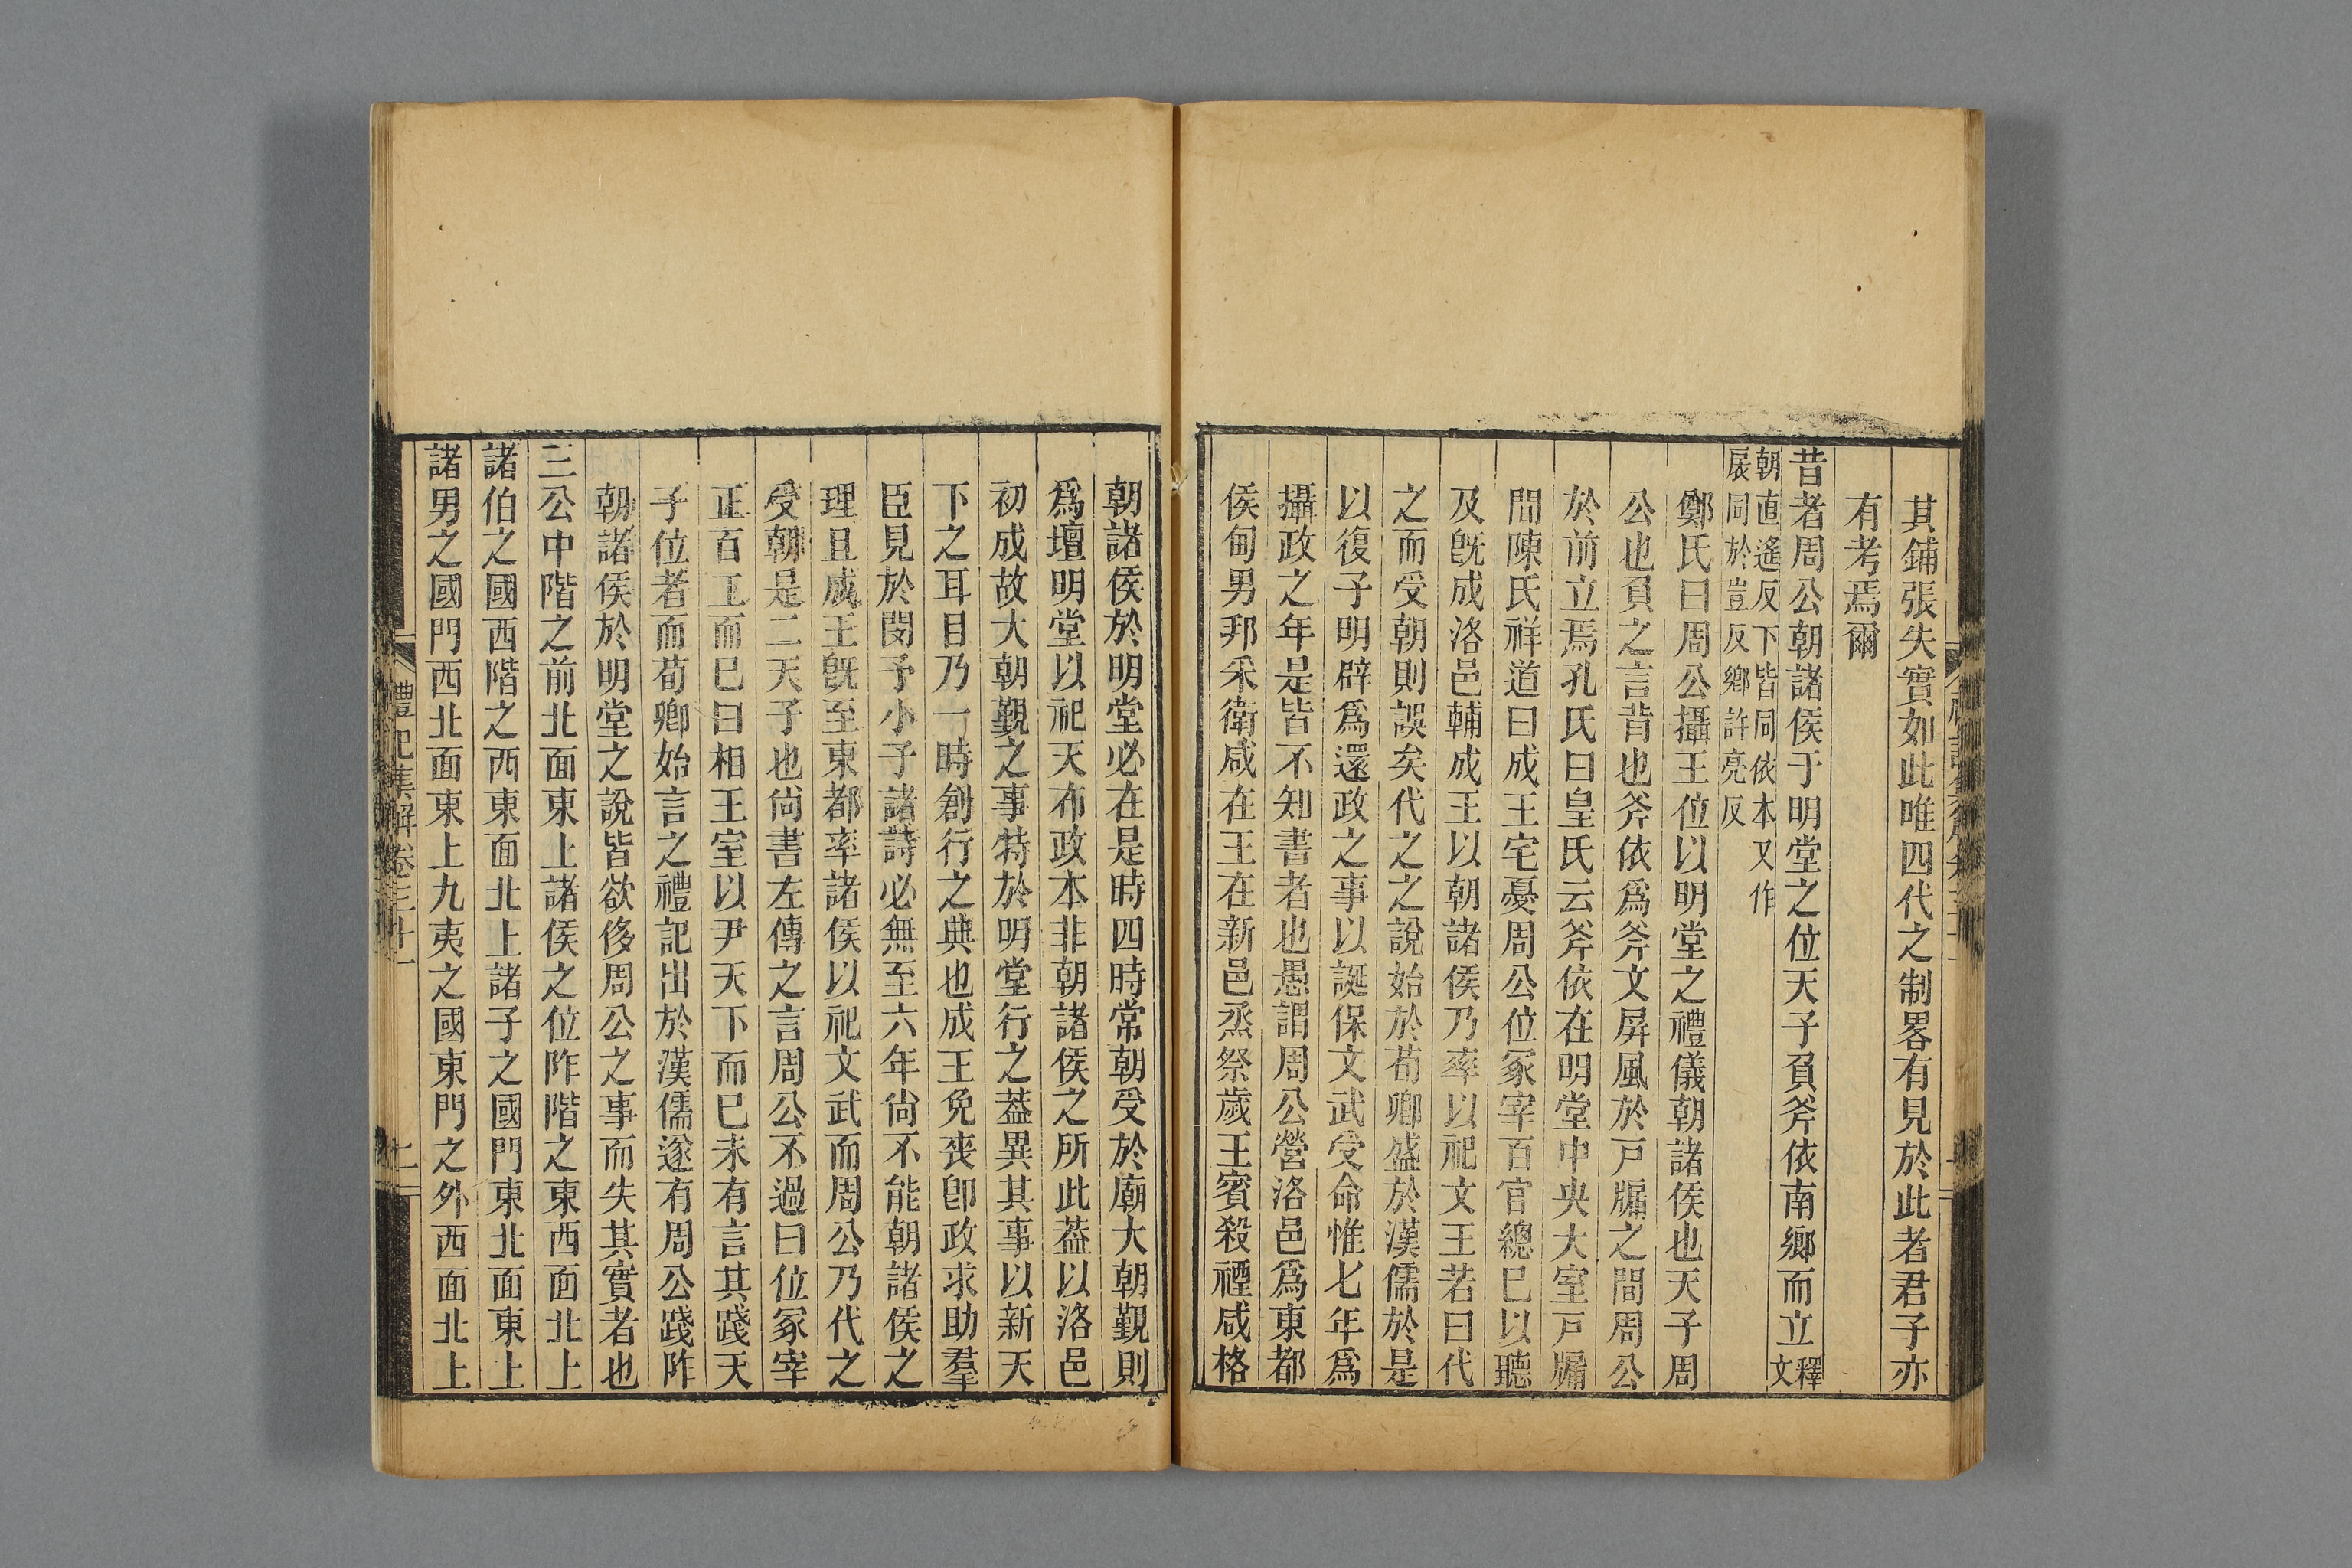 其鋪張失實如此唯四代之制畧有見於此者君子亦
有考焉爾
昔者周公朝諸侯于明堂之位天子負斧依南鄉而立釋文
朝直遙反下皆同依本又作
扆同於豈反鄉許亮反
鄭氏曰周公攝王位以明堂之禮儀朝諸侯也天子周
公也負之言背也斧依爲斧文屏風於戸牖之間周公
於前立焉孔氏曰皇氏云斧依在明堂中央大室戸牖
間陳氏祥道曰成王宅憂周公位冢宰百官總已以聽
及旣成洛邑輔成王以朝諸侯乃率以祀文王若曰代
之而受朝則誤矣代之之說始於荀卿盛於漢儒於是
以復子明辟爲還政之事以誕保文武受命惟七年爲
攝政之年是皆不知書者也愚謂周公營洛邑爲東都
侯甸男邦采衛咸在王在新邑烝祭歲王賓殺禋咸格
朝諸侯於明堂必在是時四時常朝受於廟大朝覲則
爲壇明堂以祀天布政本非朝諸侯之所此葢以洛邑
初成故大朝覲之事特於明堂行之葢異其事以新天
下之耳目乃一時創行之典也成王免喪卽政求助羣
臣見於閔予小子諸詩必無至六年尙不能朝諸侯之
理且成王旣至東都率諸侯以祀文武而周公乃代之
受朝是二天子也尙書左傳之言周公不過曰位冢宰
正百工而巳曰相王室以尹天下而巳未有言其踐天
子位者而荀卿始言之禮記出於漢儒遂有周公踐阼
朝諸侯於明堂之說皆欲侈周公之事而失其實者也
三公中階之前北面東上諸侯之位阼階之東西面北上
諸伯之國西階之西東面北上諸子之國門東北面東上
諸男之國門西北面東上九夷之國東門之外西面北上
禮記集解卷三十一